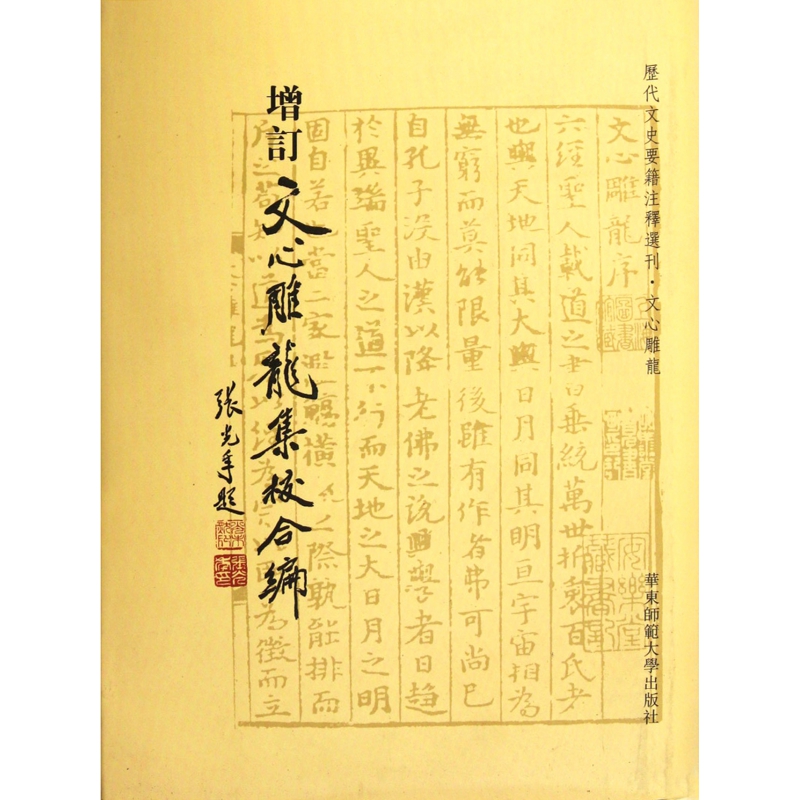 歷代文史要籍注釋選刊·文心雕龍
華東師範大學出版社
增訂文心雕龍集校合編
張光年題
文心雕龍序
六經聖人載道之書垂統萬世折衷百氏者
也與天地同其大與日月同其明亘宇宙相為
無窮而莫能限量後雖有作者弗可尚已
自孔子沒由漢以降老佛之說興學者日趨
於異端聖人之道不行而天地之大日月之明
固自若也當二家濫觴橫流之際孰能排而
斥之苟知以道為
為徵而立